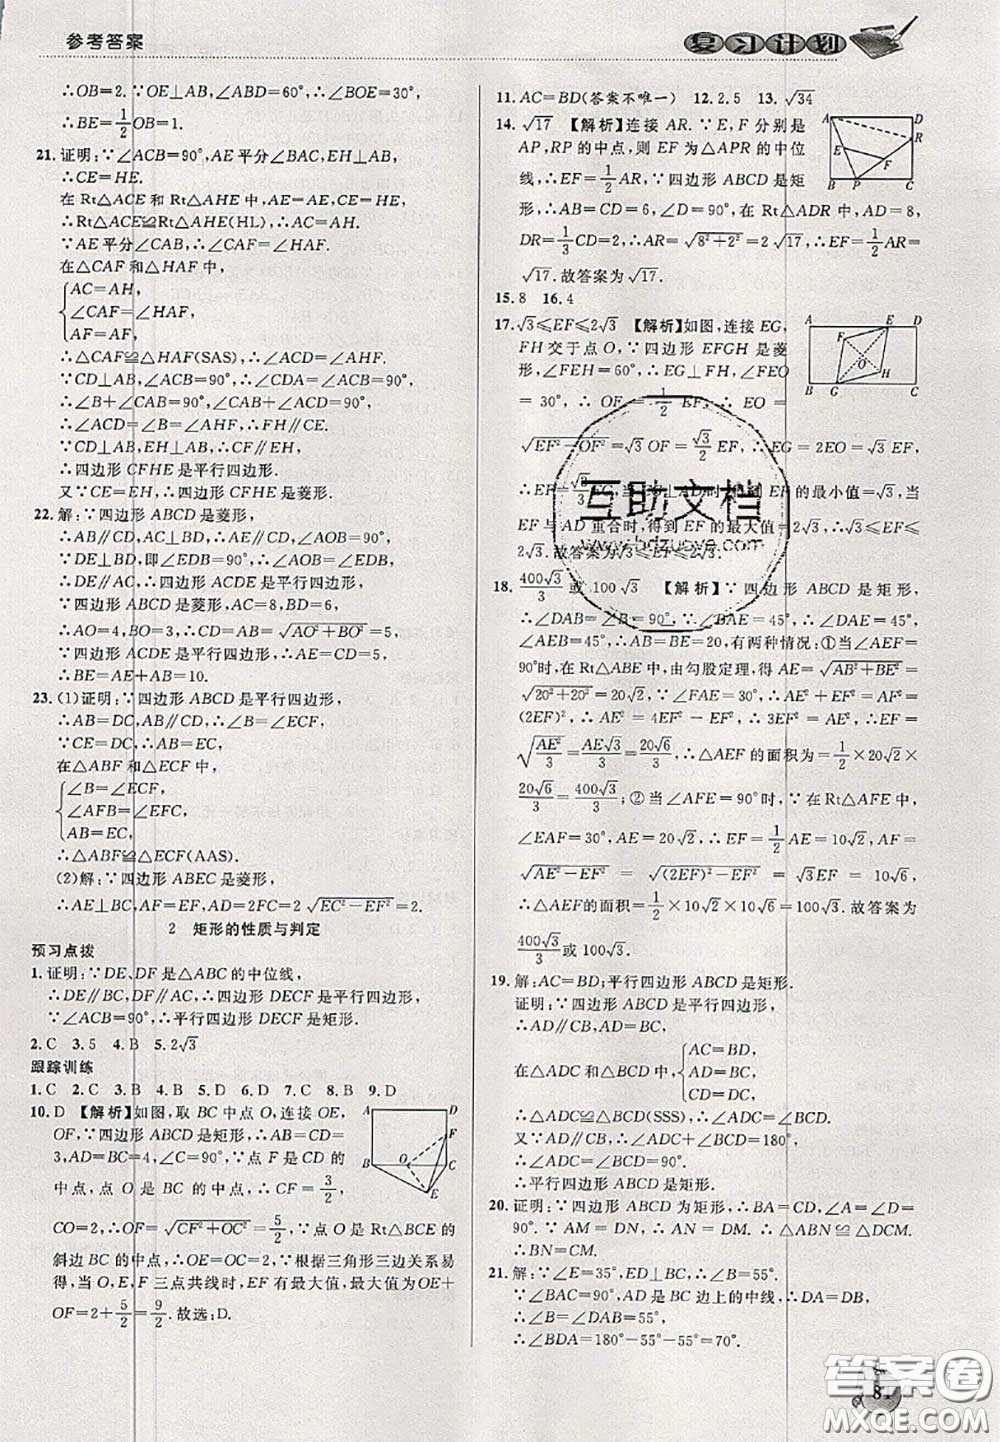 参考答案
复习计划
∴OB=2.∵OE⊥AB,∠ABD=60°,∴∠BOE=30°,
∴BE=1/2OB=1.
21.证明:∵∠ACB=90°,AE平分∠BAC,EH⊥AB,
∴CE=HE.
在Rt△ACE和Rt△AHE中,AE=AE,CE=HE,
∴Rt△ACE≌Rt△AHE(HL),∴AC=AH.
∵AE平分∠CAB,∴∠CAF=∠HAF.
在△CAF和△HAF中,
AC=AH,
∠CAF=∠HAF,
AF=AF,
∴△CAF≌△HAF(SAS),∴∠ACD=∠AHF.
∵∠ACB=90°,CD⊥AB,∴∠CDA=∠ACB=90°,
∴∠B+∠CAB=90°,∠CAB+∠ACD=90°,
∴∠ACD=∠B=∠AHF,∴FH∥CE.
∵CD⊥AB,EH⊥AB,∴CF∥EH,
∴四边形CFHE是平行四边形.
又∵CE=EH,∴四边形CFHE是菱形.
22.解:∵四边形ABCD是菱形,
∴AB∥CD,AC⊥BD,∴∠AOB=90°.
∵DE⊥BD,∴∠EDB=90°,∴∠AOB=∠EDB,
∴DE∥AC,∴四边形ACDE是平行四边形.
∵四边形ABCD是菱形,AC=8,BD=6,
∴AO=4,BO=3,∴AB=CD=√(AO²+BO²)=5,
∵四边形ACDE是平行四边形,∴AE=CD=5,
∴BE=AE+AB=10.
23.(1)证明:∵四边形ABCD是平行四边形,
∴AB=DC,AB∥CD,∴∠B=∠ECF,
∵CE=DC,∴AB=EC,
在△ABF和△ECF中,
∠B=∠ECF,
∠AFB=∠EFC,
AB=EC,
∴△ABF≌△ECF(AAS).
(2)解:∵四边形ABEC是菱形,
∴AE⊥BC,AF=EF,∴AD=2CF=2√(EC²-EF²)=2.
2 矩形的性质与判定
预习点拨
1.证明:∵DE、DF是△ABC的中位线,
∴DE∥BC,DF∥AC,∴四边形DECF是平行四边形,
∵∠ACB=90°,∴平行四边形DECF是矩形.
2.C 3.5 4.B 5.2√3
跟踪训练
1.C 2.C 3.B 4.B 5.D 6.D 7.C 8.B 9.D
10.D 【解析】如图,取BC中点O,连接OE,
OF,∵四边形ABCD是矩形,∴AB=CD=
3,AD=BC=4,∠C=90°,∵点F是CD的
中点,点O是BC的中点,∴CF=3/2,
CO=2,∴OF=√(CF²+OC²)=5/2,∵点O是Rt△BCE的
斜边BC的中点,∴OE=OC=2,∵根据三角形三边关系易
得,当O,E,F三点共线时,EF有最大值,最大值为OE+
OF=2+5/2=9/2.故选:D.
11.AC=BD(答案不唯一) 12.2.5 13.√34
14.√17 【解析】连接AR.∵E,F分别是
AP,RP的中点,则EF为△APR的中位
线,∴EF=1/2AR,∵四边形ABCD是矩
形,∴AB=CD=6,∠D=90°,在Rt△ADR中,AD=8,
DR=1/3CD=2,∴AR=√(8²+2²)=2√17,∴EF=1/2AR=
√17.故答案为√17.
15.8 16.4
17.√3≤EF≤2√3 【解析】如图,连接EG,
FH交于点O,∵四边形EFGH是菱
形,∠FEH=60°,∴EG⊥FH,∠FEO
=30°,∴OF=1/2EF,∴EO
=√(EF²-OF²)=√3OF=√3/2EF,∴EG=2EO=√3EF,
当EG⊥AD时,得到EF的最小值=√3,当
EF与AD重合时,得到EF的最大值=2√3,∴√3≤EF≤
2√3.故答案为√3≤EF≤2√3.
18.400√3/3或100√3 【解析】∵四边形ABCD是矩形,
∴∠DAB=∠B=90°,∵∠BAE=45°,∴∠DAE=45°,
∠AEB=45°,∴AB=BE=20,有两种情况:①当∠AEF=
90°时,在Rt△ABE中,由勾股定理,得AE=√(AB²+BE²)=
√(20²+20²)=20√2,∵∠FAE=30°,∴AE²+EF²=AF²=
(2EF)²,∴AE²=4EF²-EF²,∴3EF²=AE²,∴EF=
√(AE²/3)=AE√3/3=20√6/3,∴△AEF的面积为=1/2×20√2×
20√6/3=400√3/3;②当∠AFE=90°时,在Rt△AFE中,
∠EAF=30°,AE=20√2,∴EF=1/2AE=10√2,AF=
√(AE²-EF²)=√((2EF)²-EF²)=√3EF=10√6,
∴△AEF的面积=1/2×10√2×10√6=100√3.故答案为
400√3/3或100√3.
19.解:AC=BD;平行四边形ABCD是矩形.
证明:∵四边形ABCD是平行四边形,
∴AD∥BC,AD=BC,
在△ADC与△BCD中,
AC=BD,
AD=BC,
CD=DC,
∴△ADC≌△BCD(SSS),∴∠ADC=∠BCD.
又∵AD∥CB,∴∠ADC+∠BCD=180°,
∴∠ADC=∠BCD=90°,
∴平行四边形ABCD是矩形.
20.证明:∵四边形ABCD为矩形,∴AB=CD,∠A=∠D=
90°.∵AM=DN,∴AN=DM.∴△ABN≌△DCM.
∴BN=CM.
21.解:∵∠E=35°,ED⊥BC,∴∠B=55°.
∵∠BAC=90°,AD是BC边上的中线,∴DA=DB,
∴∠B=∠DAB=55°,
∴∠BDA=180°-55°-55°=70°.
互助文档
www.bdzuowe.com
答案圈
MXQE.COM
81